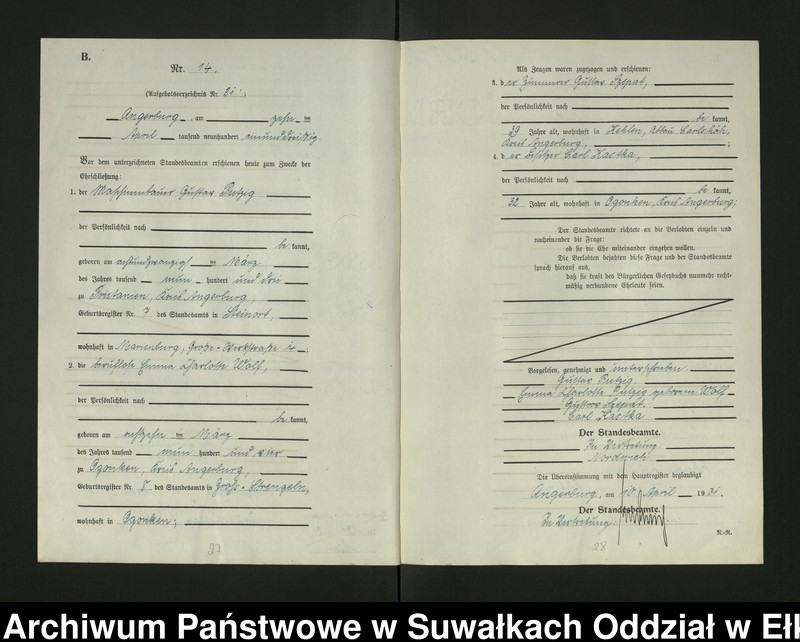 B.
Nr. 14.
(Aufgebotsverzeichnis Nr. 21.)
Angerburg, am zehn ten
April tausend neunhundert einunddreißig.
Vor dem unterzeichneten Standesbeamten erschienen heute zum Zwecke der
Eheschließung:
1. der Maschinenbauer Gustav
der Persönlichkeit nach
be kannt,
geboren am achtundzwanzigsten März
des Jahres tausend neun hundert und drei
zu Pristanien, Kreis Angerburg,
Geburtsregister Nr. 7 des Standesamts in Steinort,
wohnhaft in Marienburg, Große-Werkstraße
2. die berufslose Emma Charlotte Wolf,
der Persönlichkeit nach
be kannt,
geboren am März
des Jahres tausend neun hundert und vier
zu Ogonken, Kreis Angerburg,
Geburtsregister Nr. 8 des Standesamts in Groß-Strengeln,
wohnhaft in Ogonken;
27
Als Zeugen waren zugezogen und erschienen:
3. d er Zimmerer Gustav Szepat,
der Persönlichkeit nach
be kannt,
29 Jahre alt, wohnhaft in Kehlen, Abbau Carlshöh,
Kreis Angerburg,;
4. d er Besitzer Carl Kastka,
der Persönlichkeit nach
be kannt,
32 Jahre alt, wohnhaft in Ogonken, Kreis Angerburg;
Der Standesbeamte richtete an die Verlobten einzeln und
nacheinander die Frage:
ob sie die Ehe miteinander eingehen wollen.
Die Verlobten bejahten diese Frage und der Standesbeamte
sprach hierauf aus,
daß sie kraft des Bürgerlichen Gesetzbuchs nunmehr recht-
mäßig verbundene Eheleute seien.
Vorgelesen, genehmigt und unterschrieben:
Gustav
Emma Charlotte geborene Wolf
Gustav Szepat.
Carl Kastka
Der Standesbeamte.
In Vertretung
Die Übereinstimmung mit dem Hauptregister beglaubigt
Angerburg, am 10. April 1931.
Der Standesbeamte.
In Vertretung
R.-R.
28
Archiwum Państwowe w Suwałkach Oddział w Eł